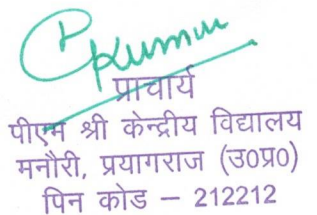 P Kumar
प्राचार्य
पीएम श्री केन्द्रीय विद्यालय
मनौरी, प्रयागराज (उ०प्र०)
पिन कोड – 212212